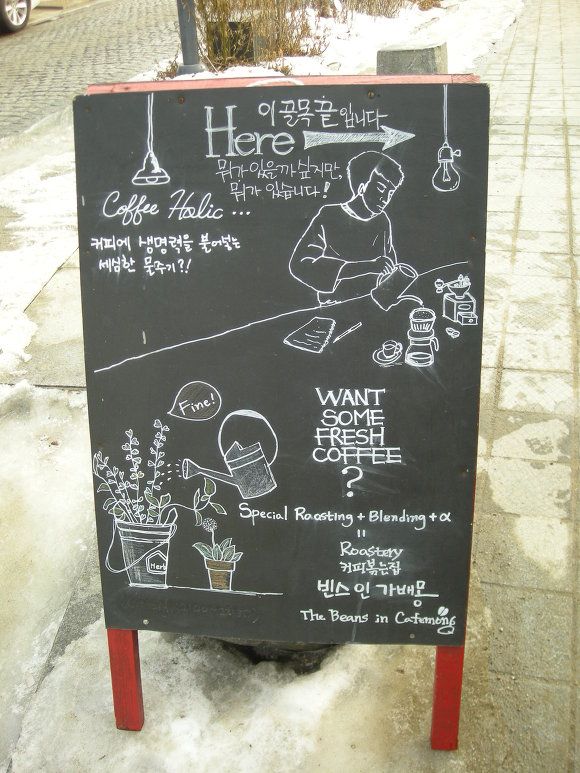 이 골목 끝 입니다
Here
뭐가 있을까 싶지만,
뭐가 있습니다!
Coffee Holic ...
커피에 생명력을 불어넣는
세심한 물주기?!
Fine!
WANT
SOME
FRESH
COFFEE
?
Special Roasting + Blending + α
=
Roastery
커피볶는집
빈스 인 가배몽
The Beans in Cafemong
Herb